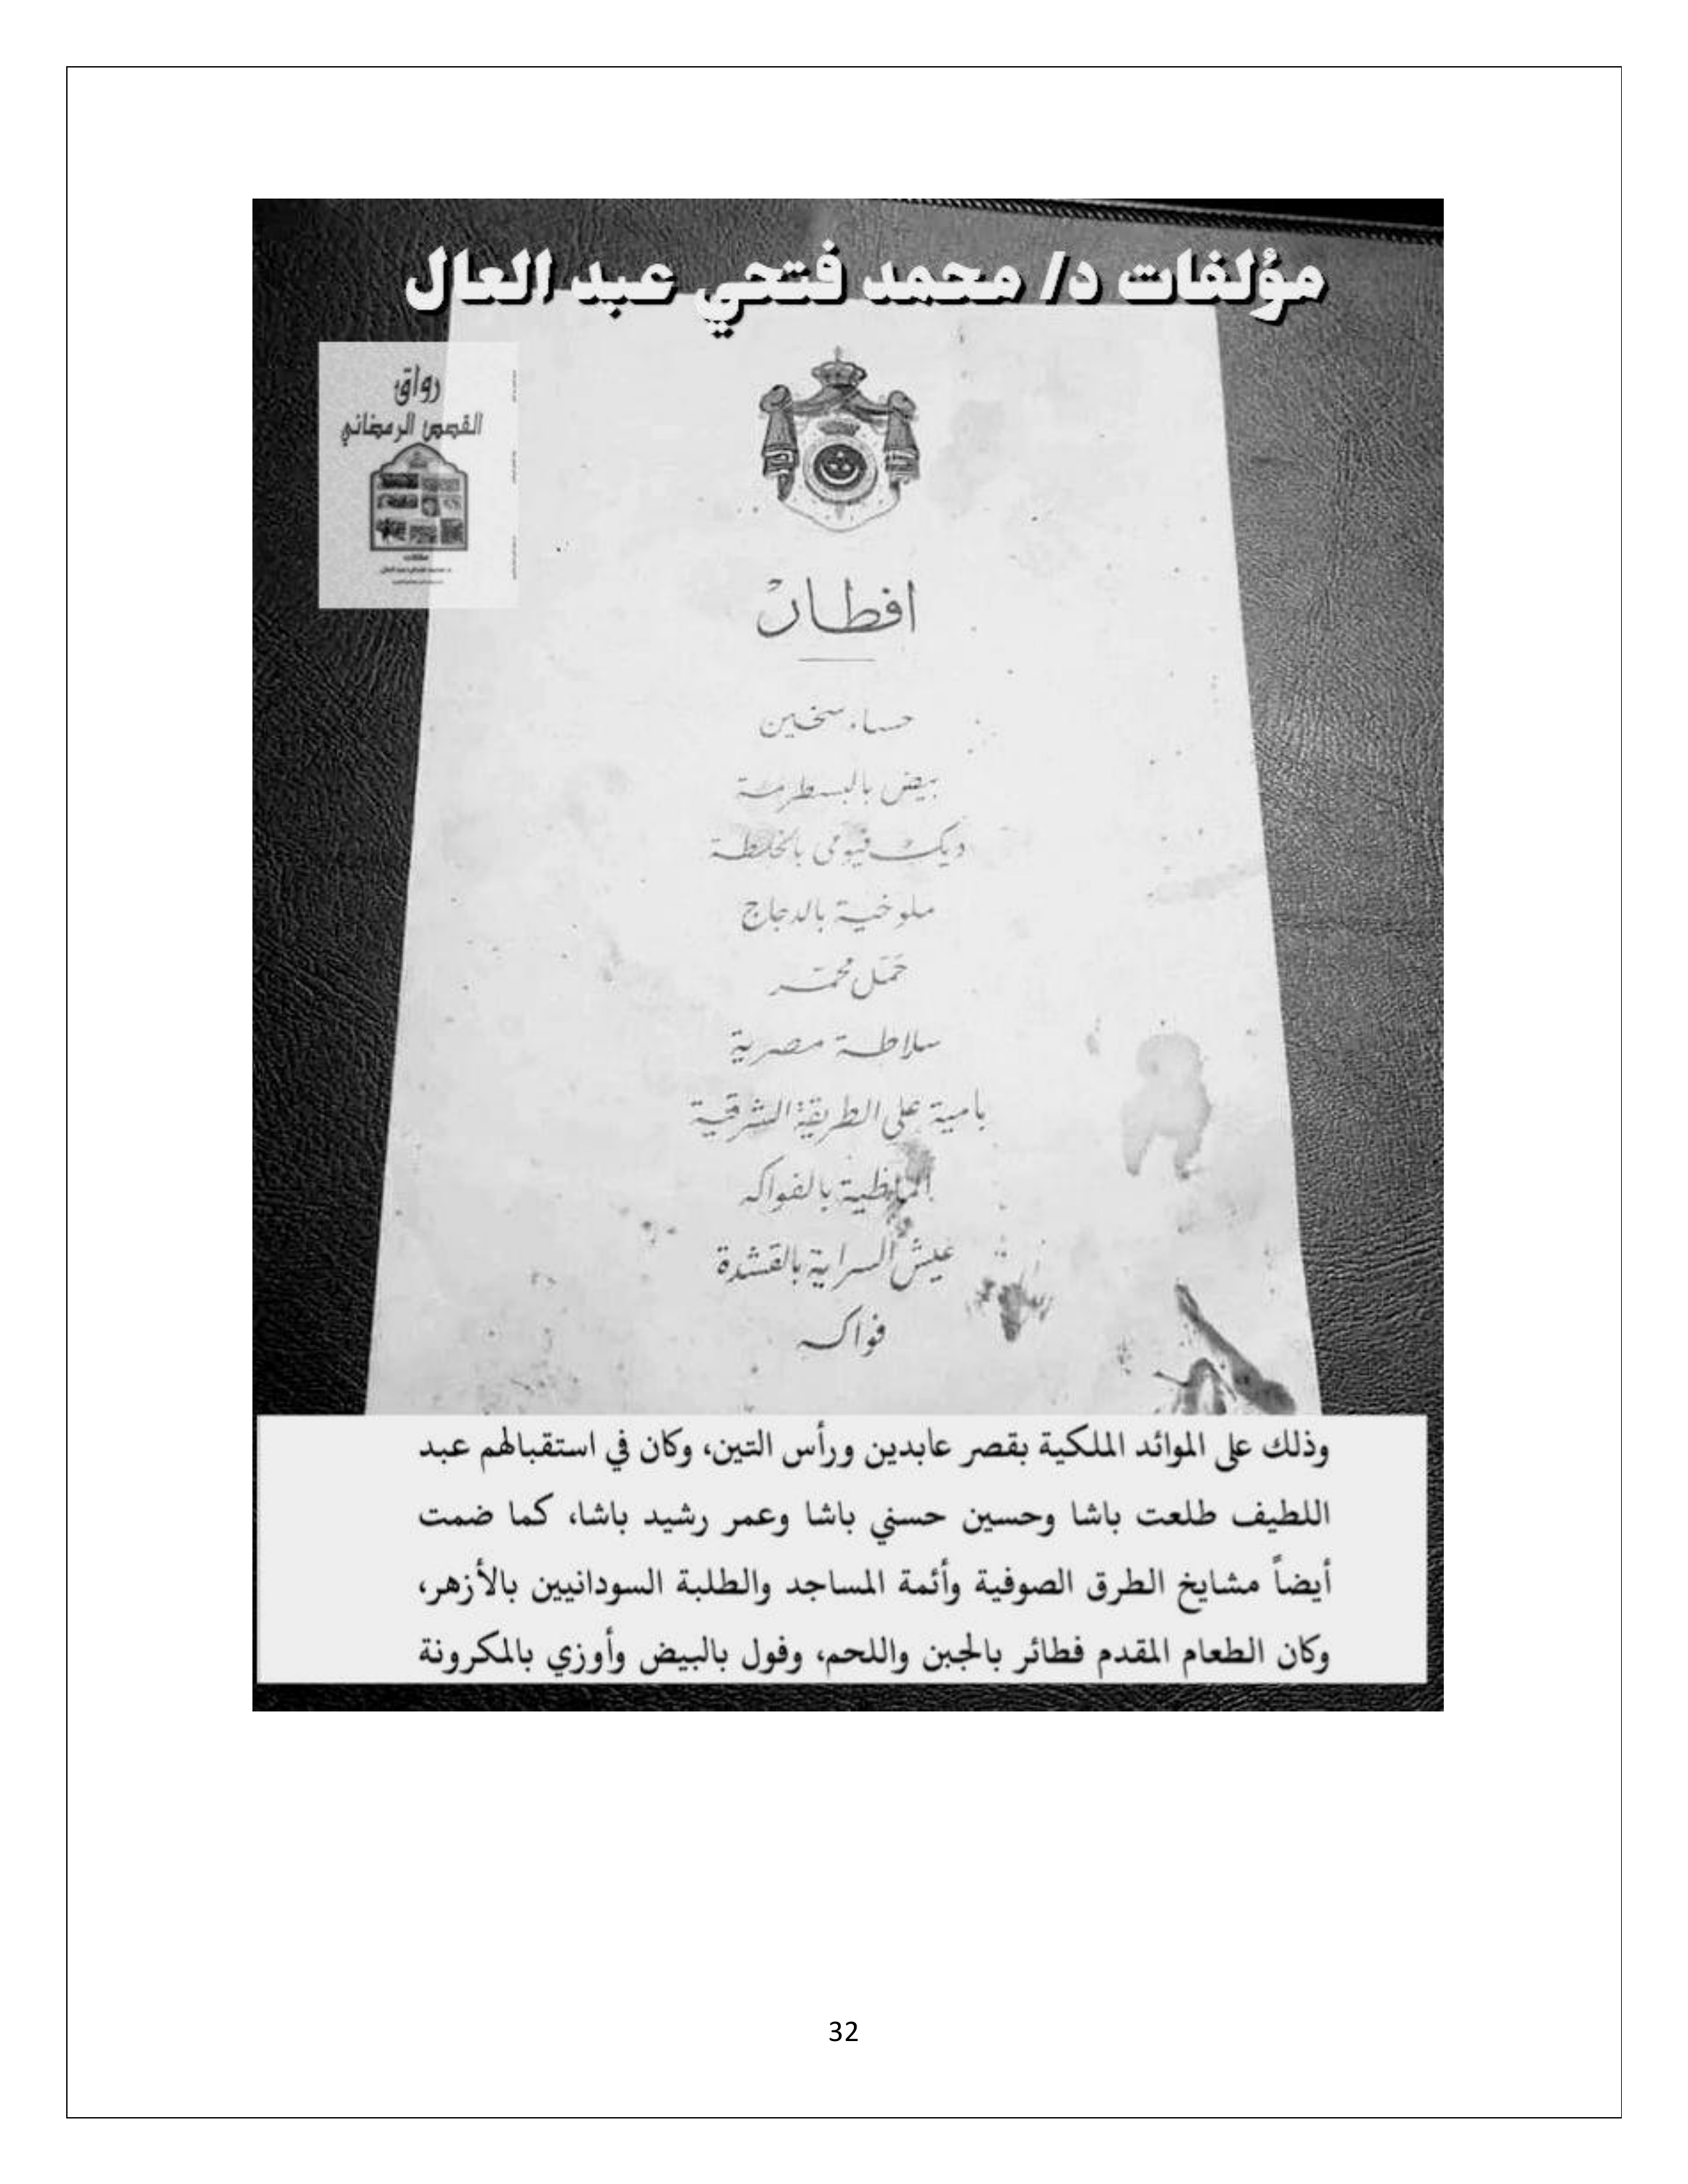 مؤلفات د/ محمد فتحي عبد العال
رواق
القصص الرمضاني
افطار
حساء سخين
بيض بالبسطرمة
ديك فيومى بالخلطة
ملوخية بالدجاج
حَمَل محمَّر
سلاطة مصرية
بامية على الطريقة الشرقية
الماظية بالفواكه
عيش السراية بالقشدة
فواكه
وذلك على الموائد الملكية بقصر عابدين ورأس التين، وكان في استقبالهم عبد
اللطيف طلعت باشا وحسين حسني باشا وعمر رشيد باشا، كما ضمت
أيضاً مشايخ الطرق الصوفية وأئمة المساجد والطلبة السودانيين بالأزهر،
وكان الطعام المقدم فطائر بالجبن واللحم، وفول بالبيض وأوزي بالمكرونة
32